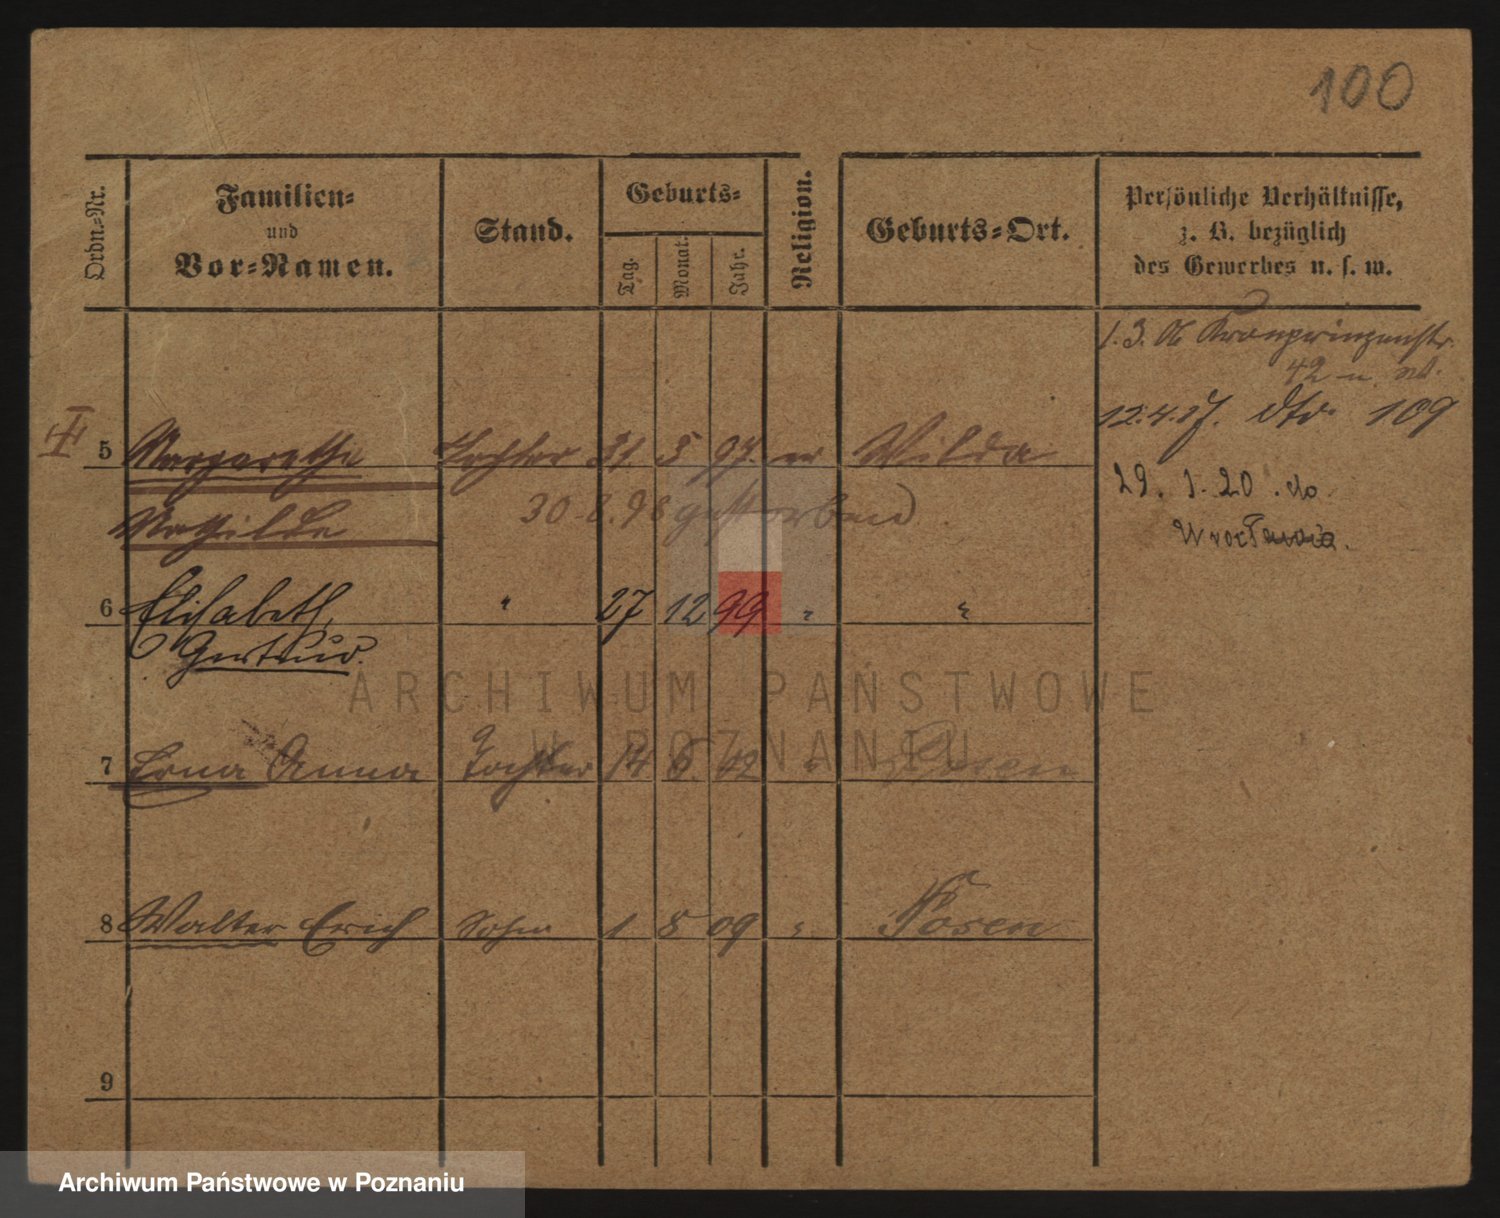 100
Ordn.-Nr.
Familien-
und
Vor-Namen.
Stand.
Geburts-
Tag.
Monat.
Jahr.
Religion.
Geburts-Ort.
Persönliche Verhältnisse,
z. B. bezüglich
des Gewerbes u. s. w.
1. 3. 06 Kronprinzenstr.
42
12.4.17. dto 109
5 Margarethe Tochter 31 5 97. ev Wilda
29. 1. 20. do
Mathilde 30. 8. 98 gestorben
Wrocławia.
6 Elisabeth, " 27 12 99 " "
Gertrud.
ARCHIWUM PAŃSTWOWE
W POZNANIU
7 Erna Anna Tochter 14 6. 02 " Posen
8 Walter Erich Sohn 1 8 09 " Posen
9
Archiwum Państwowe w Poznaniu